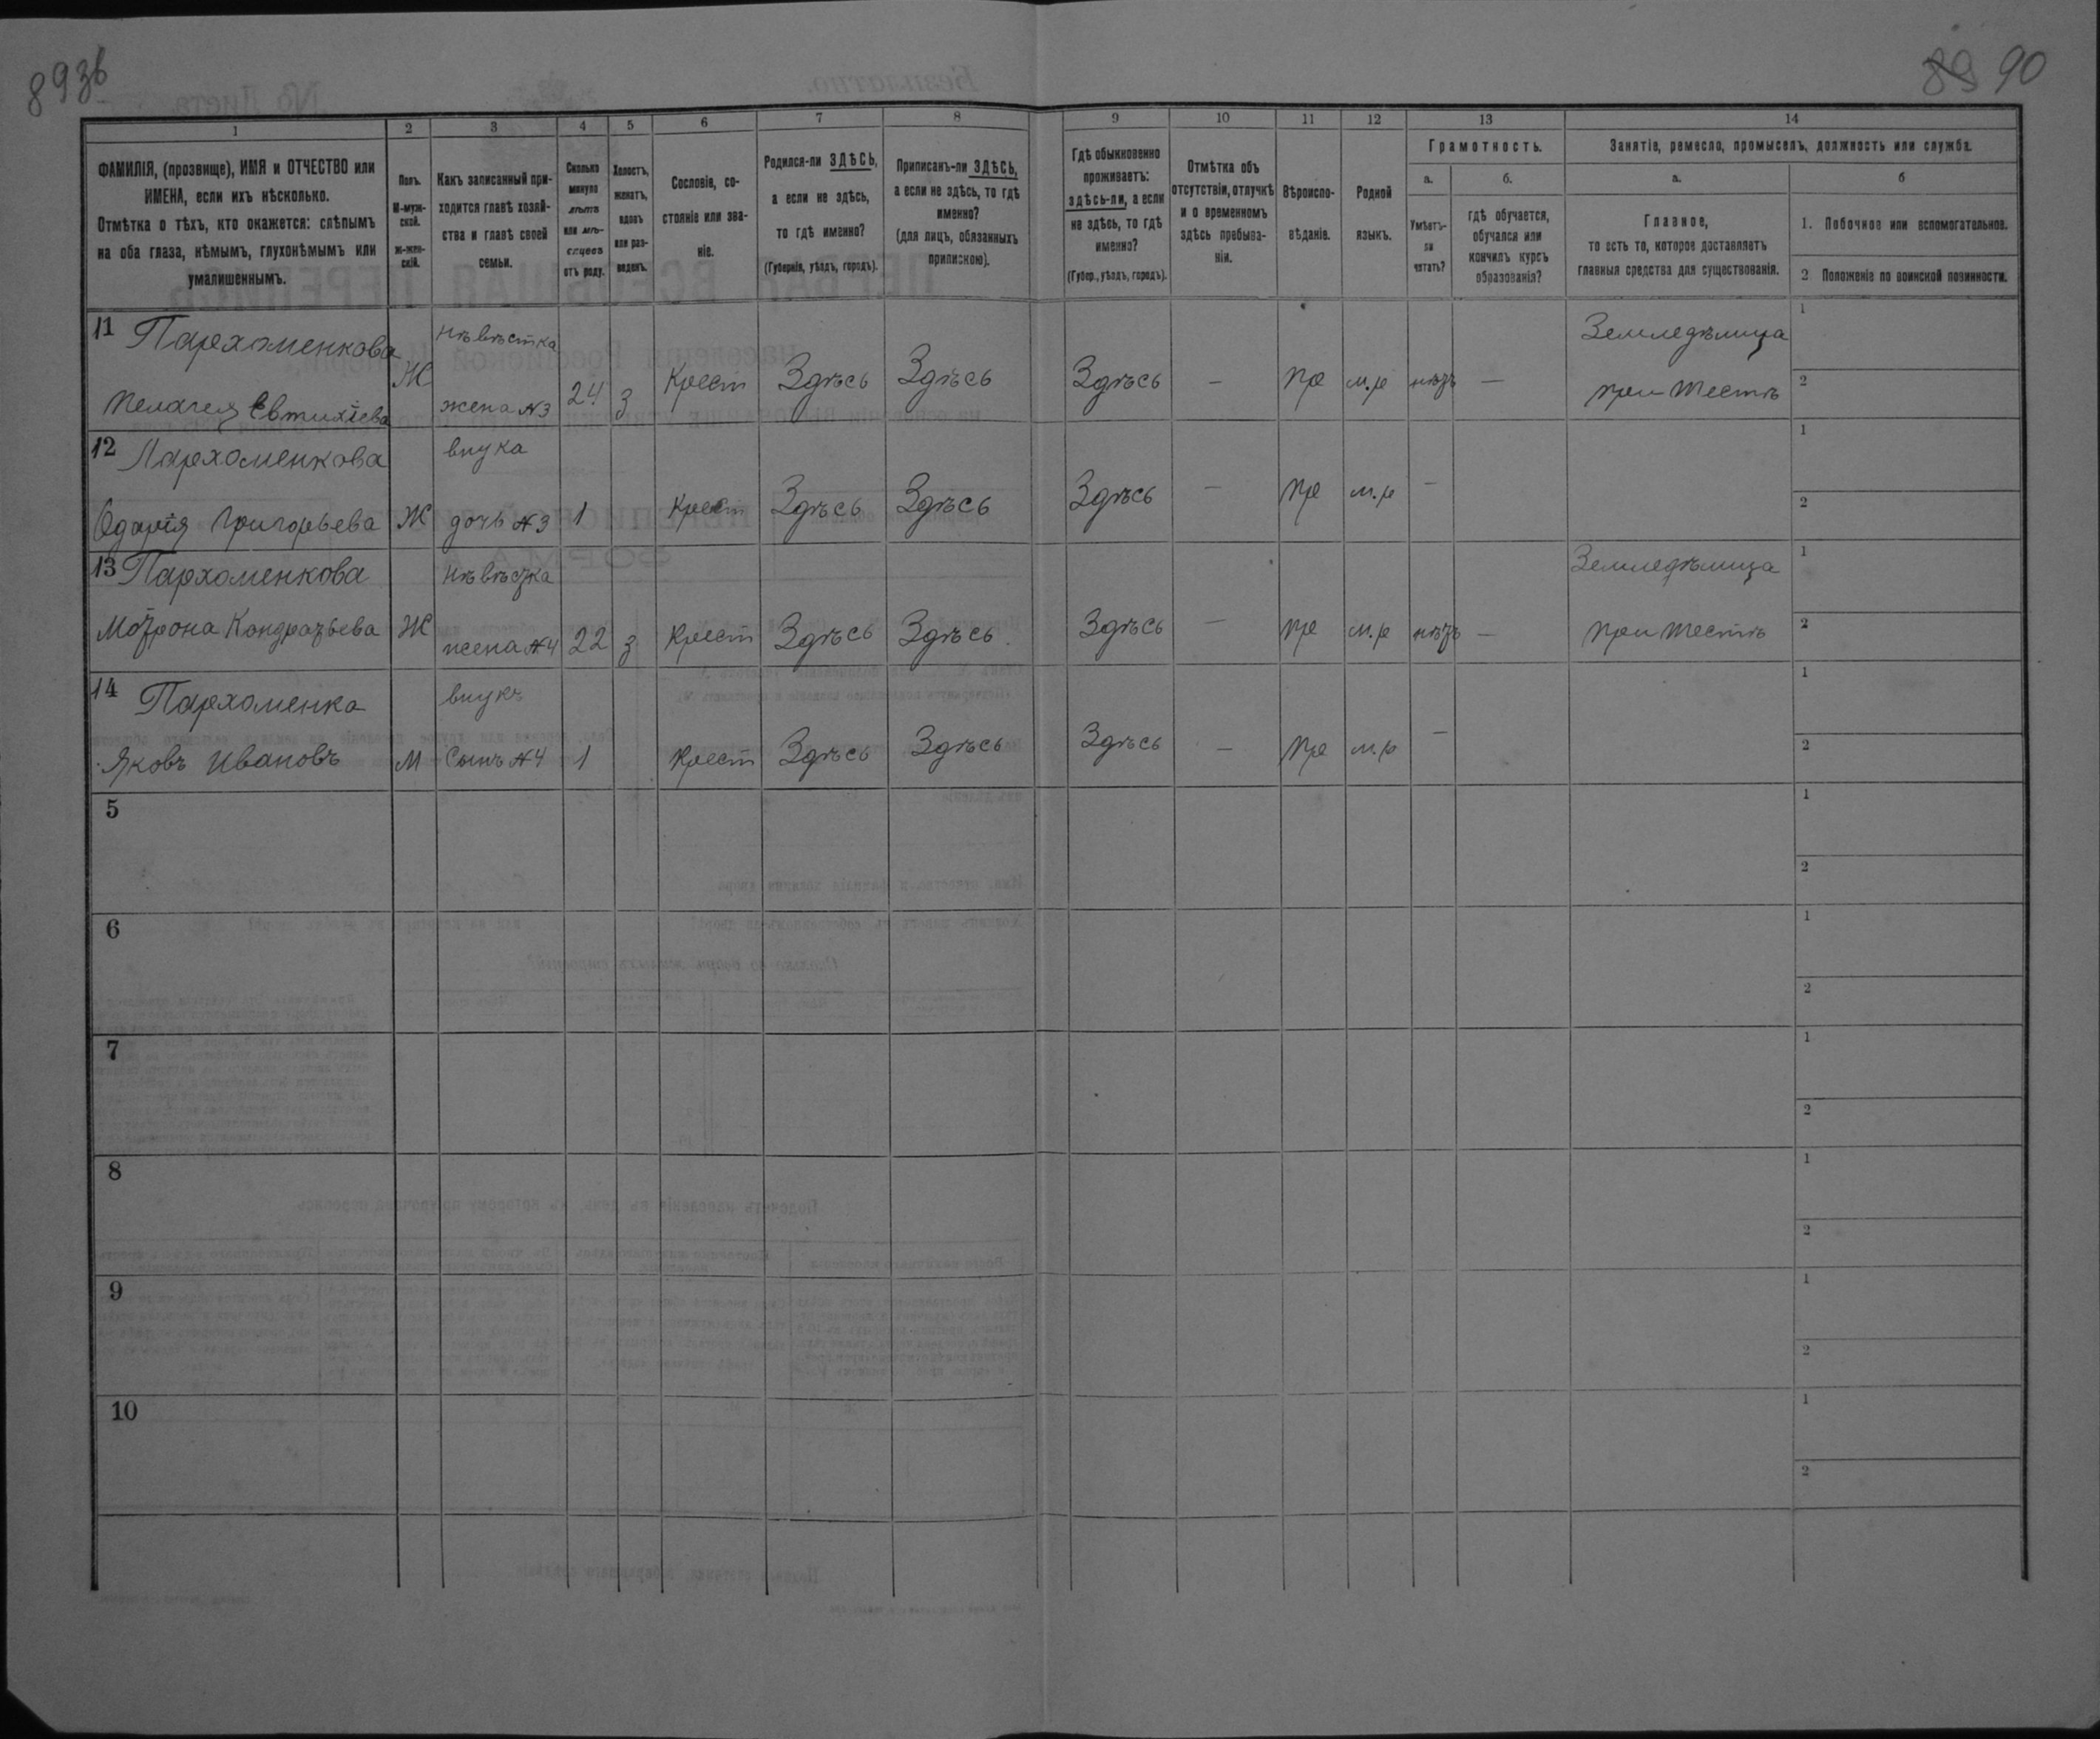 89зв
89 90
1 2 3 4 5 6 7 8 9 10 11 12 13 14
ФАМИЛІЯ, (прозвище), ИМЯ и ОТЧЕСТВО или
ИМЕНА, если ихъ нѣсколько.
Отмѣтка о тѣхъ, кто окажется: слѣпымъ
на оба глаза, нѣмымъ, глухонѣмымъ или
умалишеннымъ.
Полъ.
М-муж-
ской.
Ж-жен-
скій.
Какъ записанный при-
ходится главѣ хозяй-
ства и главѣ своей
семьи.
Сколько
минуло
лѣтъ
или мѣ-
сяцевъ
отъ роду.
Холостъ,
женатъ,
вдовъ
или раз-
веденъ.
Сословіе, со-
стояніе или зва-
ніе.
Родился-ли ЗДѢСЬ,
а если не здѣсь,
то гдѣ именно?
(Губернія, уѣздъ, городъ).
Приписанъ-ли ЗДѢСЬ,
а если не здѣсь, то гдѣ
именно?
(для лицъ, обязанныхъ
припискою).
Гдѣ обыкновенно
проживаетъ:
здѣсь-ли, а если
не здѣсь, то гдѣ
именно?
(Губер., уѣздъ, городъ).
Отмѣтка объ
отсутствіи, отлучкѣ
и о временномъ
здѣсь пребыва-
ніи.
Вѣроиспо-
вѣданіе.
Родной
языкъ.
Грамотность.
а.
Умѣетъ-
ли
читать?
б.
гдѣ обучается,
обучался или
кончилъ курсъ
образованія?
Занятіе, ремесло, промыселъ, должность или служба.
а.
Главное,
то есть то, которое доставляетъ
главныя средства для существованія.
б
1. Побочное или вспомогательное.
2 Положеніе по воинской повинности.
11 Пархоменкова нѣвѣстка Земледѣлица 1
Пелагея Евтихіева Ж жена №3 24 з Крест Здѣсь Здѣсь Здѣсь — пр м.р нѣтъ — при тестѣ 2
12 Пархоменкова внука 1
Одарія Григорьева Ж дочь №3 1 Крест Здѣсь Здѣсь Здѣсь — пр м.р — 2
13 Пархоменкова нѣвѣстка Земледѣлица 1
Мотрона Кондратьева Ж жена №4 22 з Крест Здѣсь Здѣсь. Здѣсь — пр м.р нѣтъ — при тестѣ 2
14 Пархоменка внукъ 1
Яковъ Ивановъ М Сынъ №4 1 Крест Здѣсь Здѣсь Здѣсь — пр м.р — 2
5 1
2
6 1
2
7 1
2
8 1
2
9 1
2
10 1
2